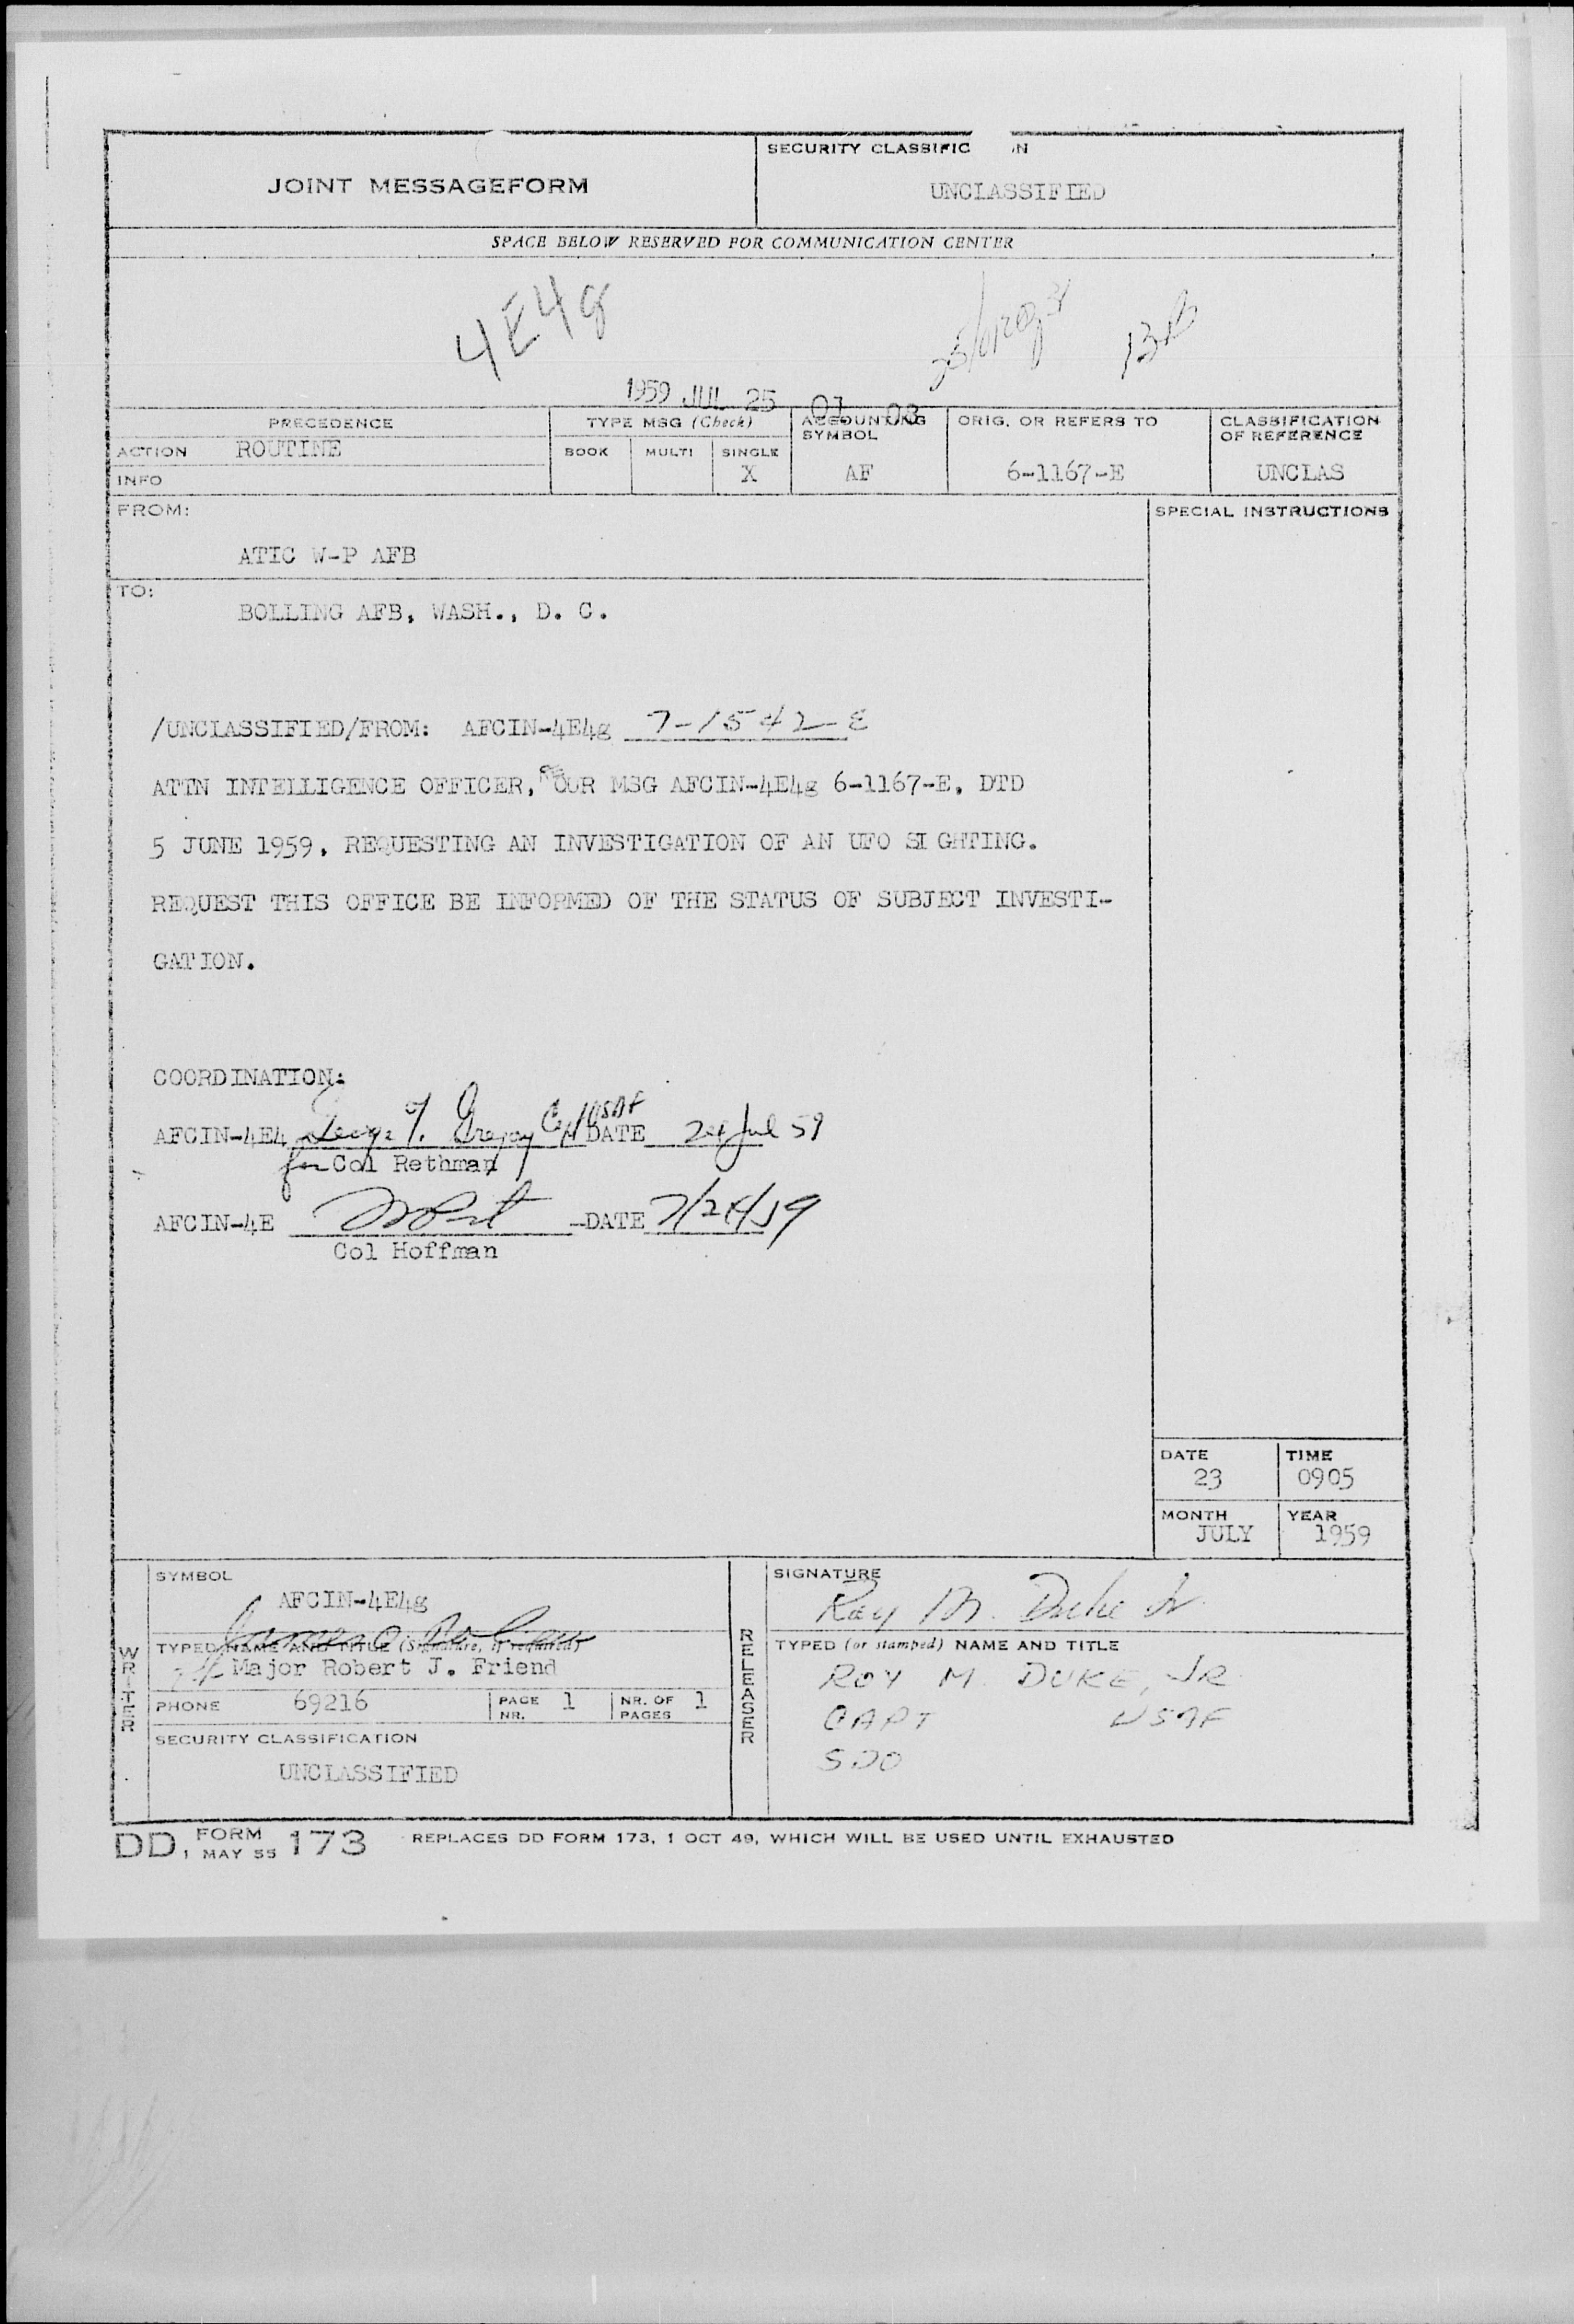 JOINT MESSAGEFORM
SECURITY CLASSIFIC IN
UNCLASSIFIED
SPACE BELOW RESERVED FOR COMMUNICATION CENTER
4E4g
1959 JUL 25 07 08
PRECEDENCE
TYPE MSG (Check)
ACCOUNTING SYMBOL
ORIG. OR REFERS TO
CLASSIFICATION OF REFERENCE
ACTION ROUTINE
BOOK MULTI SINGLE
X AF 6-1167-E UNCLAS
INFO
FROM:
SPECIAL INSTRUCTIONS
ATIC W-P AFB
TO:
BOLLING AFB, WASH., D. C.
/UNCLASSIFIED/FROM: AFCIN-4E4g 7-1542-E
ATTN INTELLIGENCE OFFICER, RE OUR MSG AFCIN-4E4g 6-1167-E, DTD
5 JUNE 1959, REQUESTING AN INVESTIGATION OF AN UFO SI GHTING.
REQUEST THIS OFFICE BE INFORMED OF THE STATUS OF SUBJECT INVESTI-
GATION.
COORDINATION:
AFCIN-4E4 George T. Gregory Capt USAF DATE 24 Jul 59
for Col Rethman
AFCIN-4E DATE 7/24/59
Col Hoffman
DATE TIME
23 0905
MONTH YEAR
JULY 1959
WRITER
SYMBOL
AFCIN-4E4g
TYPED NAME AND TITLE (Signature, if required)
Major Robert J. Friend
PHONE 69216 PAGE NR. 1 NR. OF PAGES 1
SECURITY CLASSIFICATION
UNCLASSIFIED
RELEASER
SIGNATURE
Roy M. Duke Jr
TYPED (or stamped) NAME AND TITLE
ROY M. DUKE, JR
CAPT USAF
SDO
DD FORM 1 MAY 55 173 REPLACES DD FORM 173, 1 OCT 49, WHICH WILL BE USED UNTIL EXHAUSTED